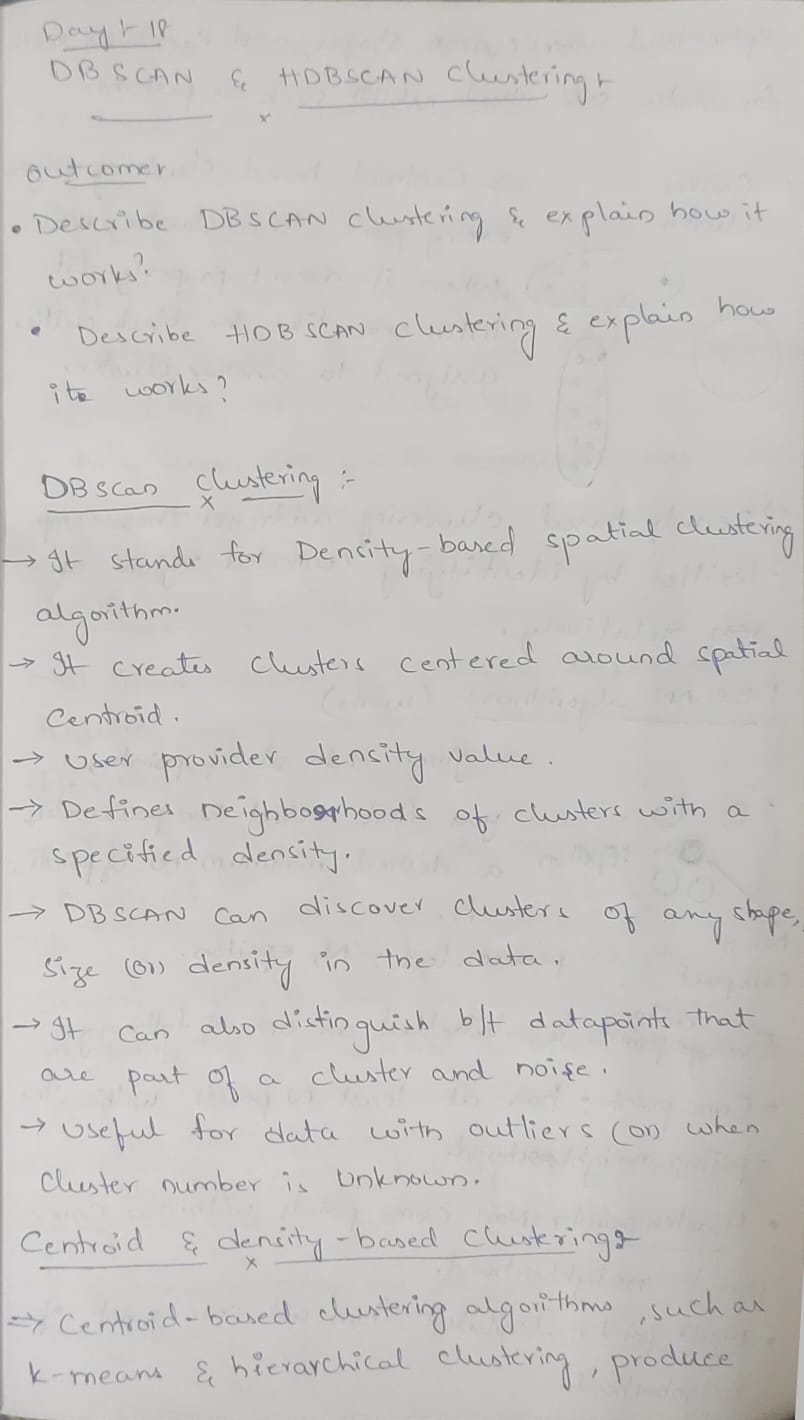 Day :- 18
DBSCAN & HDBSCAN Clustering :-
outcomes
• Describe DBSCAN clustering & explain how it
works?
• Describe HDBSCAN clustering & explain how
its works?
DBscan clustering :-
→ It stands for Density-based spatial clustering
algorithm.
→ It creates clusters centered around spatial
Centroid.
→ User provides density value.
→ Defines neighboorhoods of clusters with a
specified density.
→ DBSCAN Can discover clusters of any shape,
Size (or) density in the data.
→ It can also distinguish b/t datapoints that
are part of a cluster and noise.
→ Useful for data with outliers (or) when
Cluster number is Unknown.
Centroid & density-based Clustering :-
⇒ Centroid-based clustering algorithms, such as
k-means & hierarchical clustering, produce